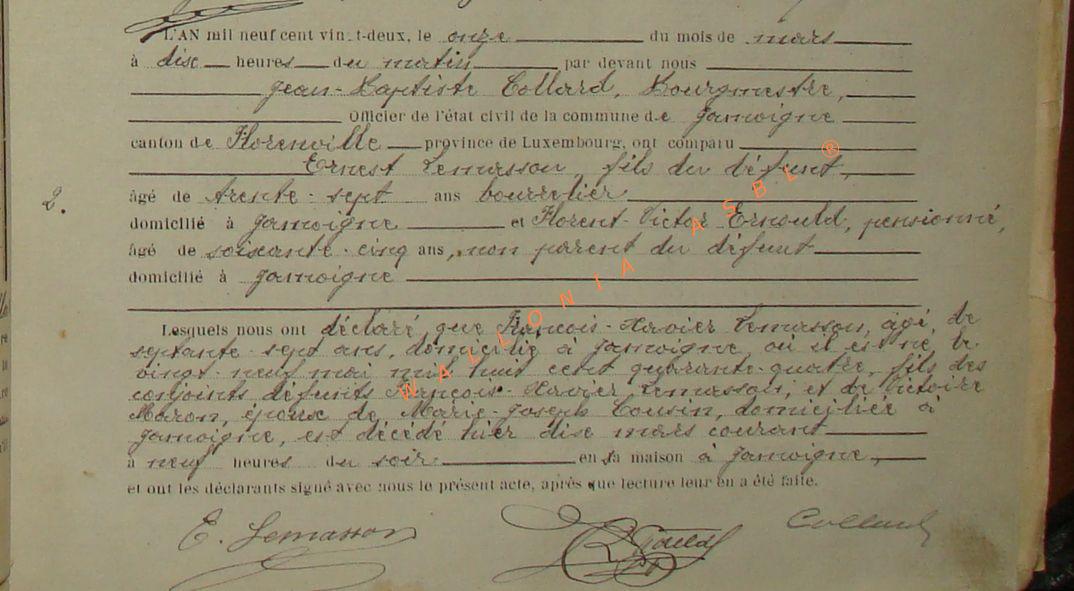 L'AN mil neuf cent vingt-deux, le onze du mois de mars
à dix heures du matin par devant nous
Jean-Baptiste Collard, Bourgmestre,
Officier de l'état civil de la commune de Jamoigne
canton de Florenville province de Luxembourg, ont comparu
Ernest Lemasson, fils du défunt,
2. âgé de trente-sept ans bourrelier
domicilié à Jamoigne et Florent-Victor Ernould, pensionné,
âgé de soixante-cinq ans, non parent du défunt
domicilié à Jamoigne
Lesquels nous ont déclaré que François-Xavier Lemasson, âgé de
septante-sept ans, domicilié à Jamoigne, où il est né le
vingt-neuf mai mil huit cent quarante-quatre, fils des
conjoints défunts François-Xavier Lemasson, et de Victoire
Maron, époux de Marie-Joseph Cousin, domiciliée à
Jamoigne, est décédé hier dix mars courant
à neuf heures du soir en sa maison à Jamoigne,
et ont les déclarants signé avec nous le présent acte, après que lecture leur en a été faite.
E. Lemasson Collard
WALLONIA ASBL ®